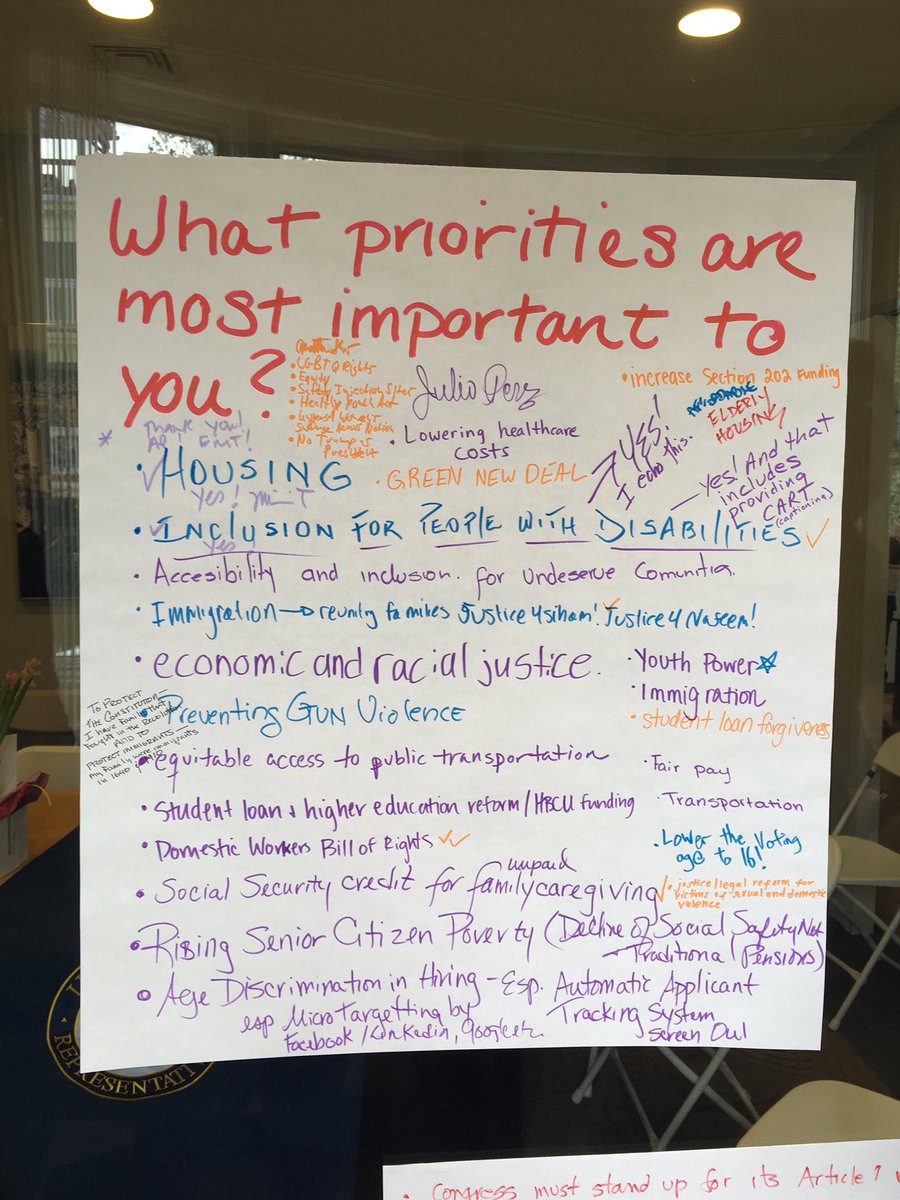 What priorities are
most important to
you?
• LGBTQ Rights
• Equity
• Safety Injection Sites
• Healthy Youth Act
• No Trump as
President
Julio Perez
• Lowering healthcare
costs
• increase Section 202 Funding
ELDERLY
HOUSING
YES!
I echo this.
* THANK YOU!
• HOUSING
Yes!
• GREEN NEW DEAL
Yes! And that
includes
providing
CART
(captioning)
• INCLUSION FOR PEOPLE WITH DISABILITIES
Yes
• Accesibility and inclusion. for Undeserve Comunitia.
• Immigration → reunify families Justice 4 siham! Justice 4 Naseem!
• economic and racial justice.
• Youth Power
• Immigration
• student loan forgiveness
TO PROTECT
the CONSTITUTION—
I have family that
fought in the Revolution
AND TO
PROTECT IMMIGRANTS—
my family were immigrants
in 1640
• Preventing GUN Violence
• equitable access to public transportation
• Fair pay
• student loan & higher education reform/HBCU funding
• Transportation
• Domestic Workers Bill of Rights
• Lower the Voting
age to 16!
• Social Security credit for unpaid family caregiving
• justice/legal reform for
victims of sexual and domestic
violence
• Rising Senior Citizen Poverty (Decline of Social Safety Net
– Traditional Pensions)
• Age Discrimination in Hiring – Esp. Automatic Applicant
Tracking System
Screen Out
esp MicroTargetting by
Facebook/Linkedin, Google etc.
REPRESENTATI
• Congress must stand up for its Article 1